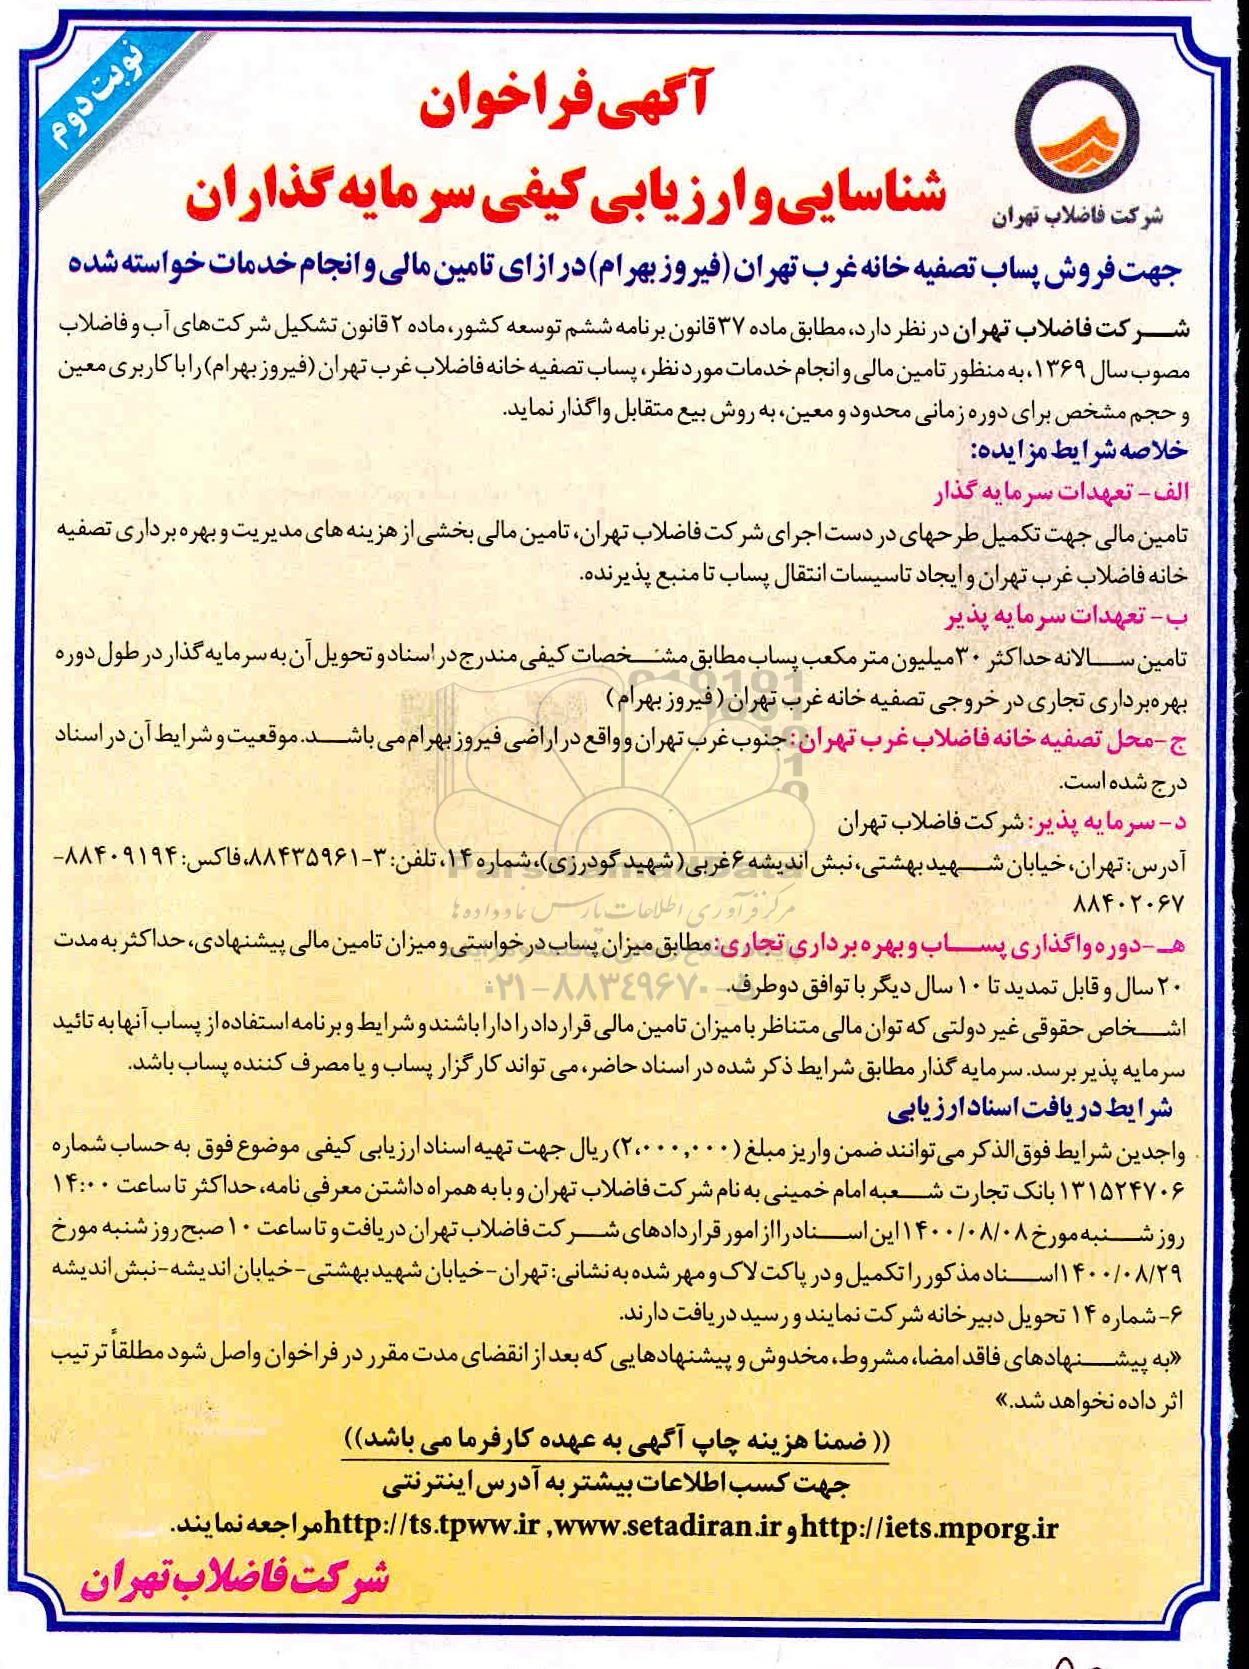 نوبت دوم
آگهی فراخوان
شناسایی و ارزیابی کیفی سرمایه گذاران
شرکت فاضلاب تهران
جهت فروش پساب تصفیه خانه غرب تهران (فیروز بهرام) در ازای تامین مالی و انجام خدمات خواسته شده
شرکت فاضلاب تهران در نظر دارد، مطابق ماده ۳۷ قانون برنامه ششم توسعه کشور، ماده ۲ قانون تشکیل شرکت‌های آب و فاضلاب
مصوب سال ۱۳۶۹، به منظور تامین مالی و انجام خدمات مورد نظر، پساب تصفیه خانه فاضلاب غرب تهران (فیروز بهرام) را با کاربری معین
و حجم مشخص برای دوره زمانی محدود و معین، به روش بیع متقابل واگذار نماید.
خلاصه شرایط مزایده:
الف- تعهدات سرمایه گذار
تامین مالی جهت تکمیل طرحهای در دست اجرای شرکت فاضلاب تهران، تامین مالی بخشی از هزینه های مدیریت و بهره برداری تصفیه
خانه فاضلاب غرب تهران و ایجاد تاسیسات انتقال پساب تا منبع پذیرنده.
ب- تعهدات سرمایه پذیر
تامین سالانه حداکثر ۳۰ میلیون متر مکعب پساب مطابق مشخصات کیفی مندرج در اسناد و تحویل آن به سرمایه گذار در طول دوره
بهره‌برداری تجاری در خروجی تصفیه خانه غرب تهران (فیروز بهرام)
ج-محل تصفیه خانه فاضلاب غرب تهران: جنوب غرب تهران و واقع در اراضی فیروز بهرام می باشد. موقعیت و شرایط آن در اسناد
درج شده است.
د-سرمایه پذیر: شرکت فاضلاب تهران
آدرس: تهران، خیابان شهید بهشتی، نبش اندیشه ۶ غربی (شهید گودرزی)، شماره ۱۴، تلفن: ۳-۸۸۴۳۵۹۶۱، فاکس: ۸۸۴۰۹۱۹۴-
۸۸۴۰۲۰۶۷
هـ-دوره واگذاری پساب و بهره برداری تجاری: مطابق میزان پساب درخواستی و میزان تامین مالی پیشنهادی، حداکثر به مدت
۲۰ سال و قابل تمدید تا ۱۰ سال دیگر با توافق دوطرف.
اشخاص حقوقی غیر دولتی که توان مالی متناظر با میزان تامین مالی قرارداد را دارا باشند و شرایط و برنامه استفاده از پساب آنها به تائید
سرمایه پذیر برسد. سرمایه گذار مطابق شرایط ذکر شده در اسناد حاضر، می تواند کارگزار پساب و یا مصرف کننده پساب باشد.
شرایط دریافت اسناد ارزیابی
واجدین شرایط فوق‌الذکر می‌توانند ضمن واریز مبلغ (۲،۰۰۰,۰۰۰) ریال جهت تهیه اسناد ارزیابی کیفی موضوع فوق به حساب شماره
۱۳۱۵۲۴۷۰۶ بانک تجارت شعبه امام خمینی به نام شرکت فاضلاب تهران و با به همراه داشتن معرفی نامه، حداکثر تا ساعت ۱۴:۰۰
روز شنبه مورخ ۱۴۰۰/۰۸/۰۸ این اسناد را از امور قراردادهای شرکت فاضلاب تهران دریافت و تا ساعت ۱۰ صبح روز شنبه مورخ
۱۴۰۰/۰۸/۲۹ اسناد مذکور را تکمیل و در پاکت لاک و مهر شده به نشانی: تهران-خیابان شهید بهشتی-خیابان اندیشه-نبش اندیشه
۶-شماره ۱۴ تحویل دبیرخانه شرکت نمایند و رسید دریافت دارند.
«به پیشنهادهای فاقد امضا، مشروط، مخدوش و پیشنهادهایی که بعد از انقضای مدت مقرر در فراخوان واصل شود مطلقاً ترتیب
اثر داده نخواهد شد.»
(( ضمنا هزینه چاپ آگهی به عهده کارفرما می باشد))
جهت کسب اطلاعات بیشتر به آدرس اینترنتی
http://iets.mporg.ir و www.setadiran.ir ,http://ts.tpww.ir مراجعه نمایند.
شرکت فاضلاب تهران
ParsNamadData
مرکز فرآوری اطلاعات پارس نماد داده ها
۰۲۱-۸۸۳۴۹۶۷۰